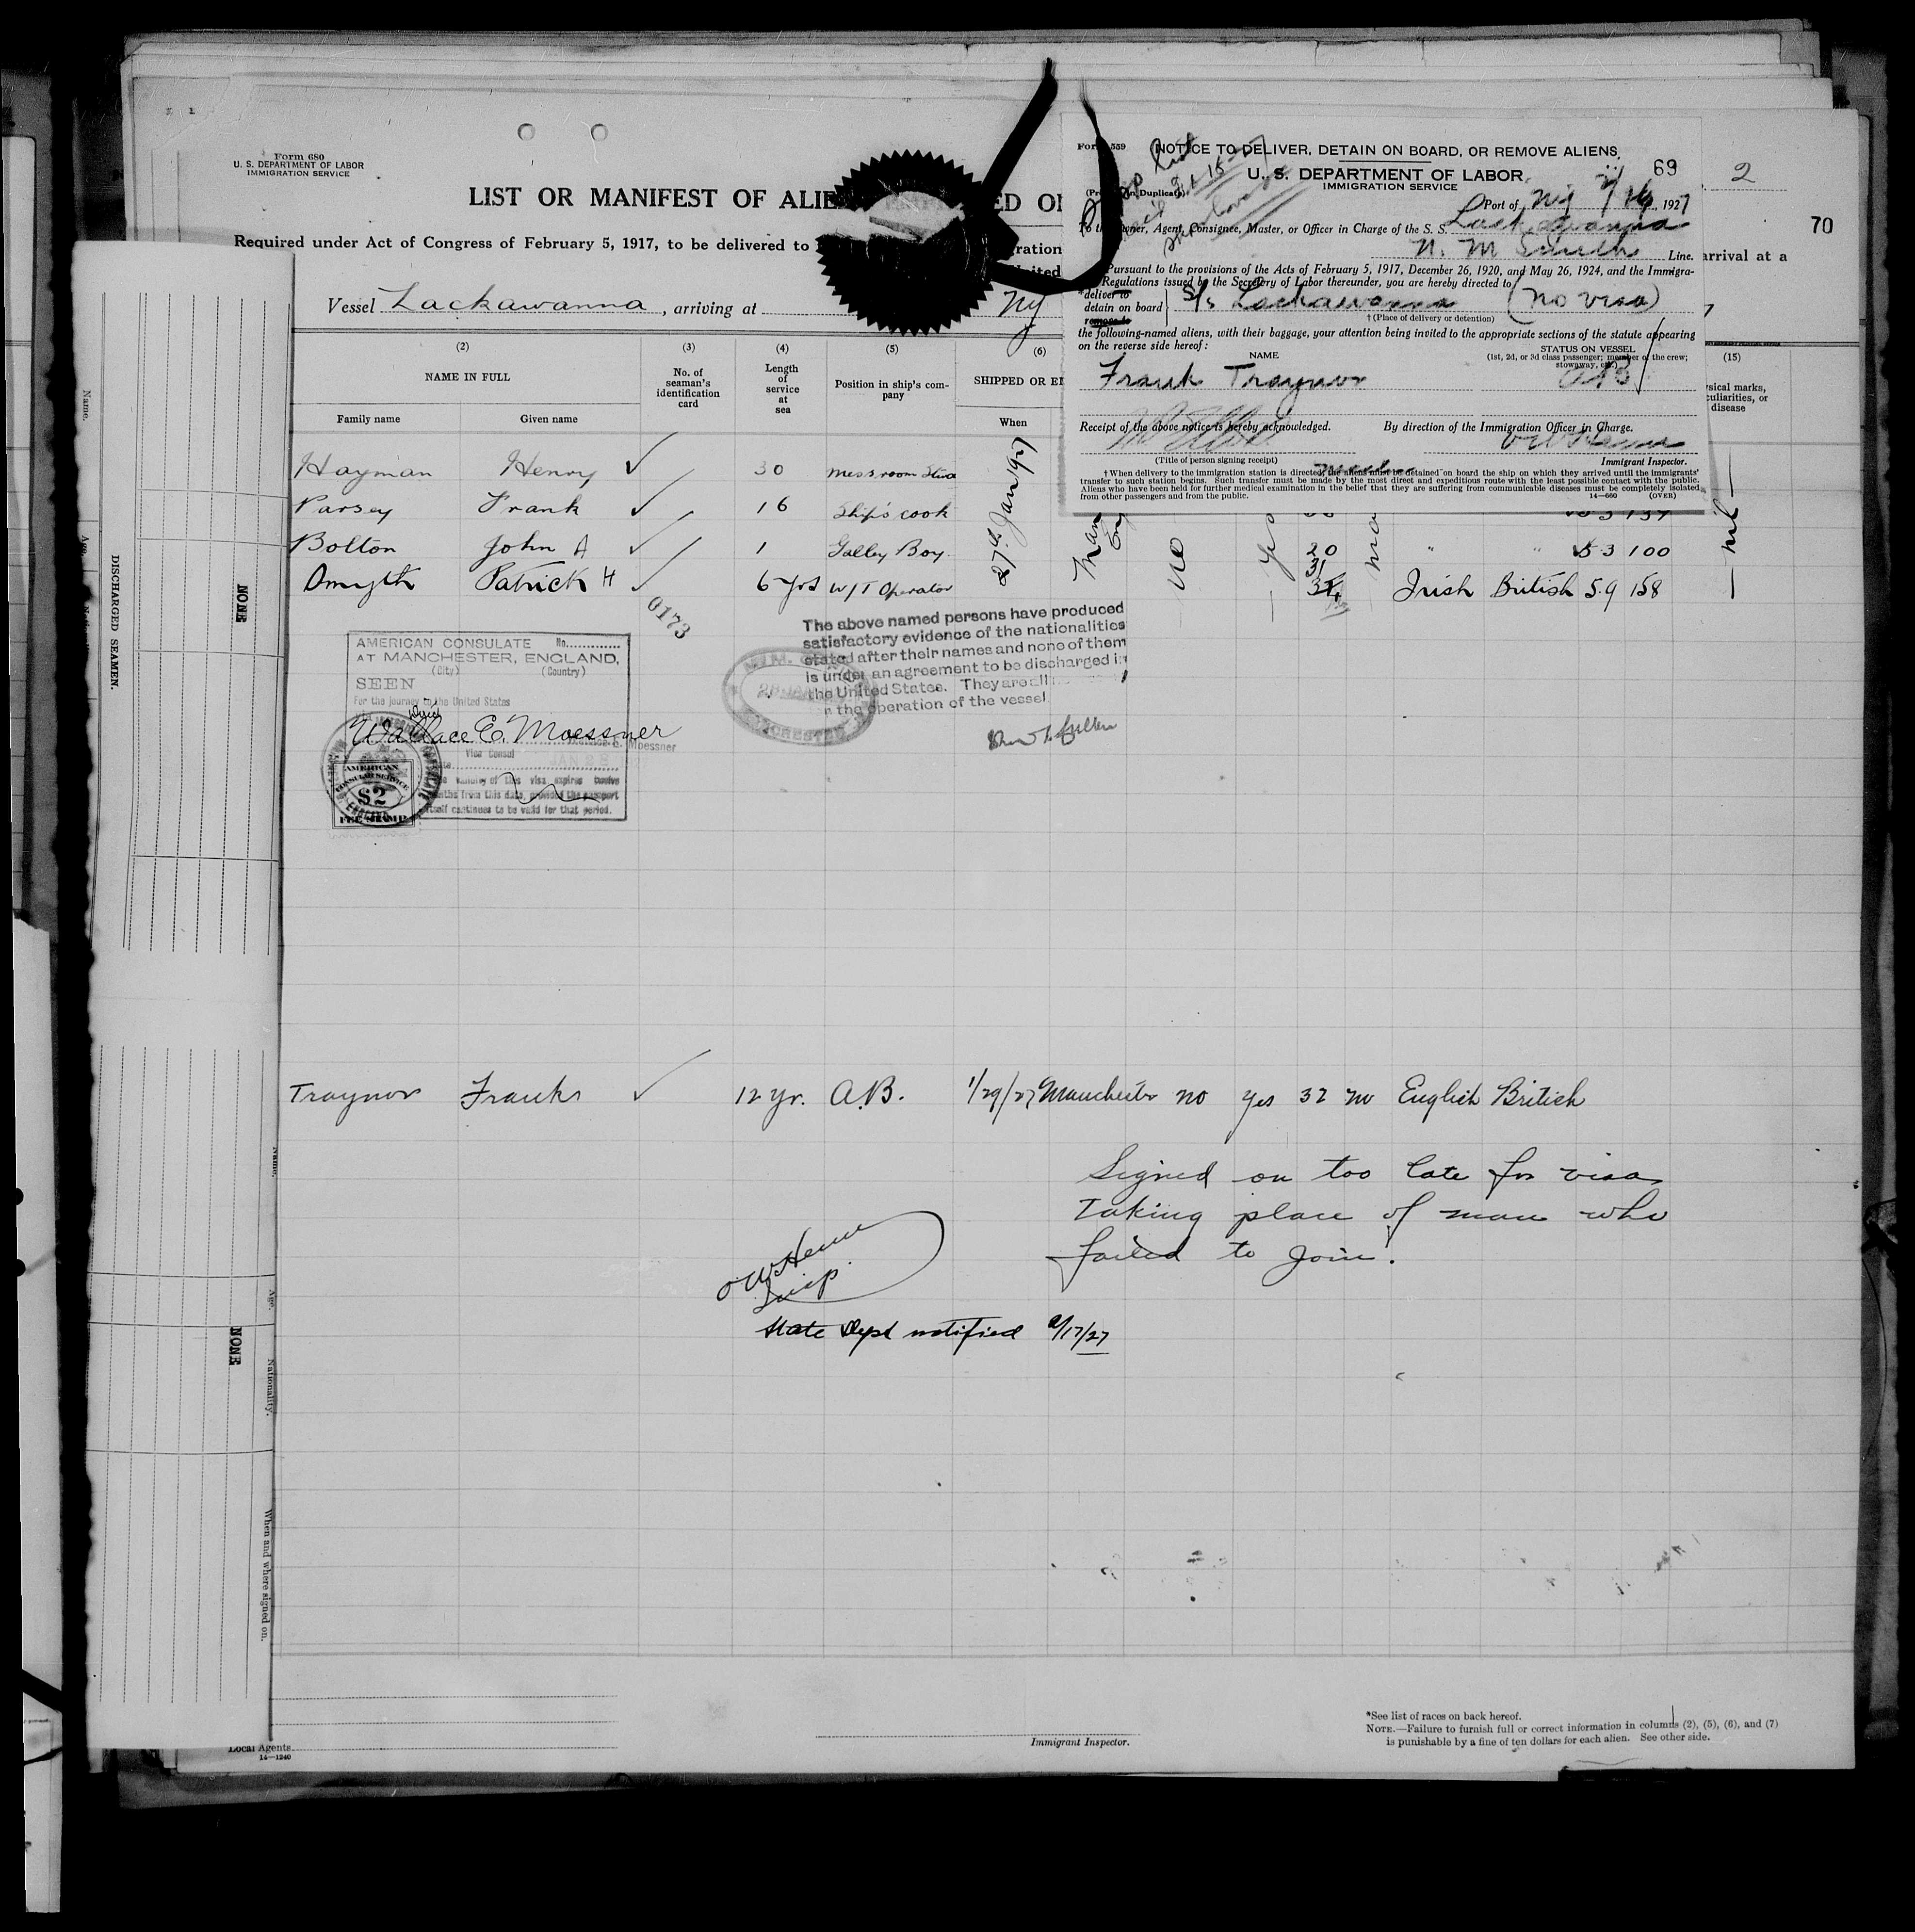 Form 680
U. S. DEPARTMENT OF LABOR
IMMIGRATION SERVICE
LIST OR MANIFEST OF ALIE
ED O
Required under Act of Congress of February 5, 1917, to be delivered to
gration
United
arrival at a
2
70
Vessel Lackawanna, arriving at NY
(2) (3) (4) (5) (6) (15)
NAME IN FULL
Family name Given name
No. of seaman's identification card
Length of service at sea
Position in ship's company
SHIPPED OR E
When
sical marks,
culiarities, or
disease
Hayman Henry 30 Messroom Stwd
Parsey Frank 16 Ship's cook
Bolton John A 1 Galley Boy 20 " " 5 3 100
Smyth Patrick H 6 yrs W/T Operator 31 Irish British 5.9 158
27th Jan 1927
no
yes
nil
0173
The above named persons have produced
satisfactory evidence of the nationalities
stated after their names and none of them
is under an agreement to be discharged in
the United States. They are all
the operation of the vessel
AMERICAN CONSULATE No.
AT MANCHESTER, ENGLAND,
(City) (Country)
SEEN
For the journey to the United States
Wallace E. Moessner
Vice Consul
validity of this visa expires twelve
months from this date, provided the passport
itself continues to be valid for that period.
AMERICAN
CONSULAR SERVICE
$2
FEE STAMP
Form 559
NOTICE TO DELIVER, DETAIN ON BOARD, OR REMOVE ALIENS
69
U. S. DEPARTMENT OF LABOR
IMMIGRATION SERVICE
(Prepare in Duplicate)
Port of NY 2/16, 1927
To the Owner, Agent, Consignee, Master, or Officer in Charge of the S. S. Lackawanna
N. M Smith Line.
Pursuant to the provisions of the Acts of February 5, 1917, December 26, 1920, and May 26, 1924, and the Immigra-
Regulations issued by the Secretary of Labor thereunder, you are hereby directed to
*deliver to
detain on board
remove to
S/s Lackawanna (no visa)
† (Place of delivery or detention)
the following-named aliens, with their baggage, your attention being invited to the appropriate sections of the statute appearing
on the reverse side hereof:
NAME
STATUS ON VESSEL
(1st, 2d, or 3d class passenger; member of the crew;
stowaway, etc.)
Frank Traynor AB
Receipt of the above notice is hereby acknowledged. By direction of the Immigration Officer in Charge.
(Title of person signing receipt)
Immigrant Inspector.
† When delivery to the immigration station is directed, the aliens must be detained on board the ship on which they arrived until the immigrants'
transfer to such station begins. Such transfer must be made by the most direct and expeditious route with the least possible contact with the public.
Aliens who have been held for further medical examination in the belief that they are suffering from communicable diseases must be completely isolated
from other passengers and from the public. 14—660 (OVER)
Traynor Frank 12 yr. A.B. 1/29/27 Manchester no yes 32 m English British
Signed on too late for visa
Taking place of man who
failed to join.
Insp.
State Dept notified 2/17/27
Name.
Age.
DISCHARGED SEAMEN.
NONE
NONE
Name.
Age.
Nationality.
When and where signed on.
Local Agents
14—1240
Immigrant Inspector.
*See list of races on back hereof.
NOTE.—Failure to furnish full or correct information in columns (2), (5), (6), and (7)
is punishable by a fine of ten dollars for each alien. See other side.